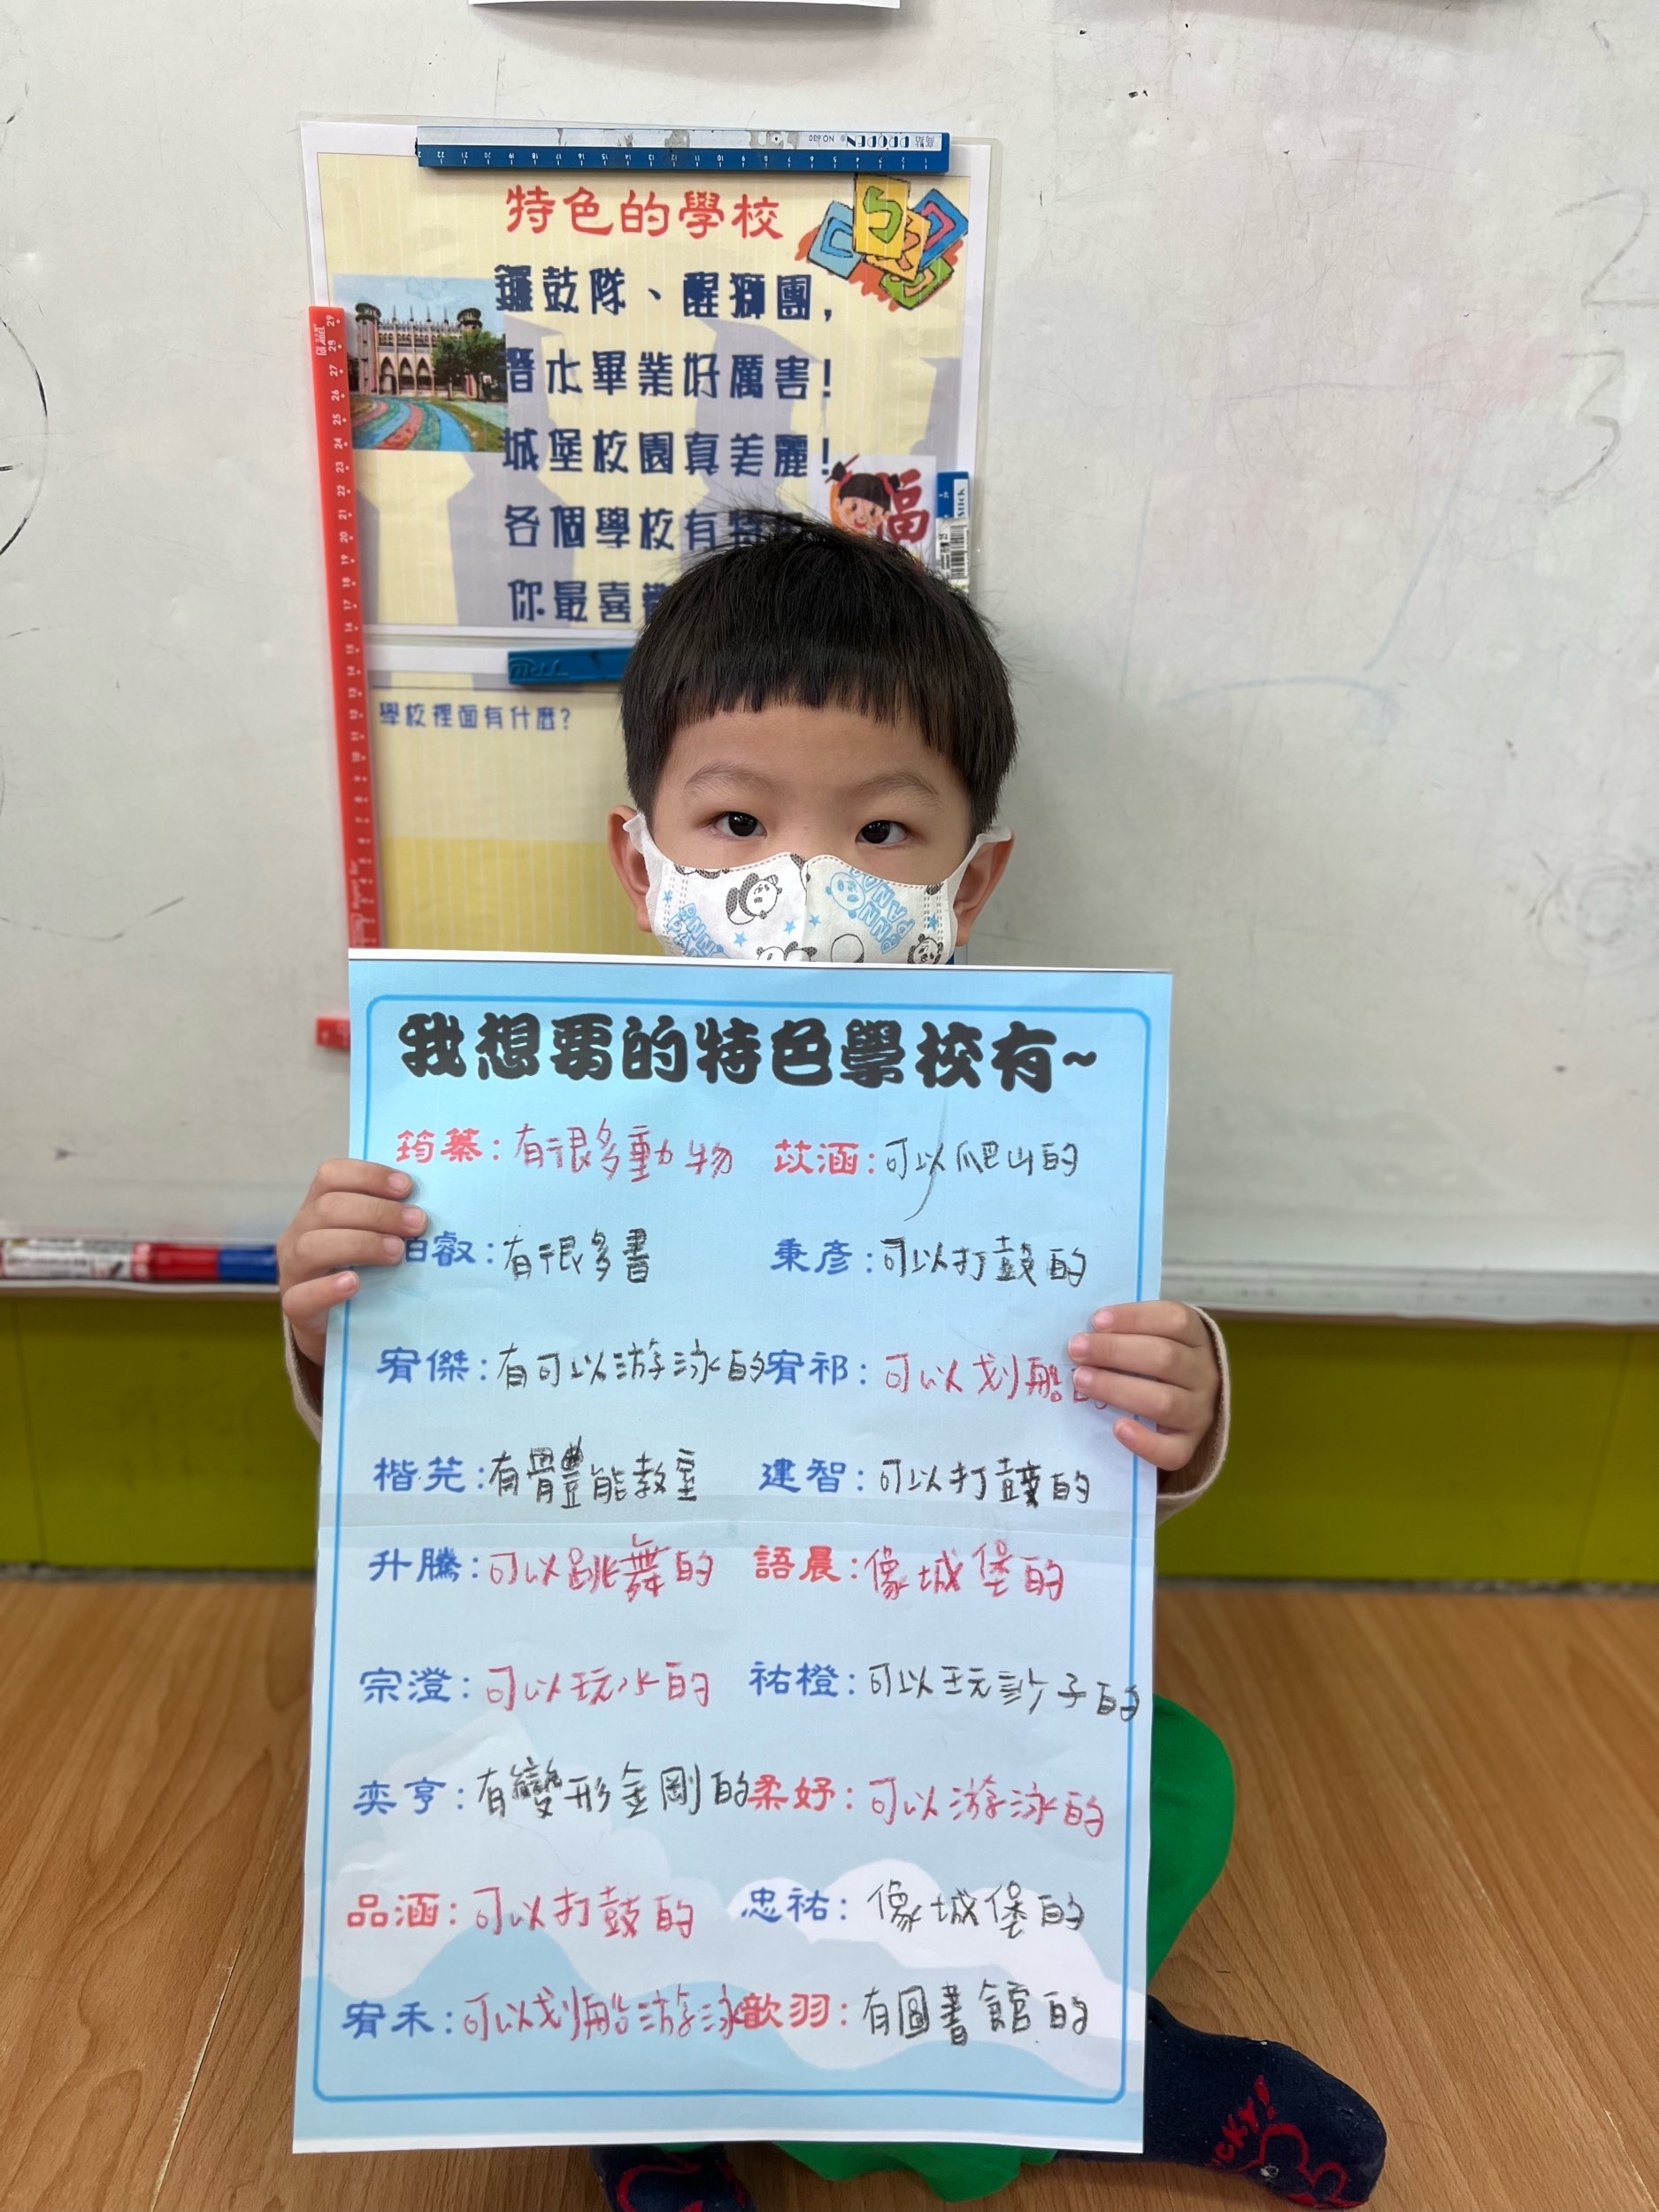 特色的學校
鑼鼓隊、醒獅團,
潛水畢業好厲害!
城堡校園真美麗!
各個學校有特
你最喜歡
福
學校裡面有什麼?
我想要的特色學校有~
筠蓁:有很多動物 苡涵:可以爬山的
柏叡:有很多書 秉彥:可以打鼓的
宥傑:有可以游泳的 宥祁:可以划船的
楷芫:有體能教室 建智:可以打鼓的
升騰:可以跳舞的 語晨:像城堡的
宗澄:可以玩水的 祐橙:可以玩沙子的
奕亨:有變形金剛的 柔妤:可以游泳的
品涵:可以打鼓的 忠祐:像城堡的
宥禾:可以划船游泳 歆羽:有圖書館的